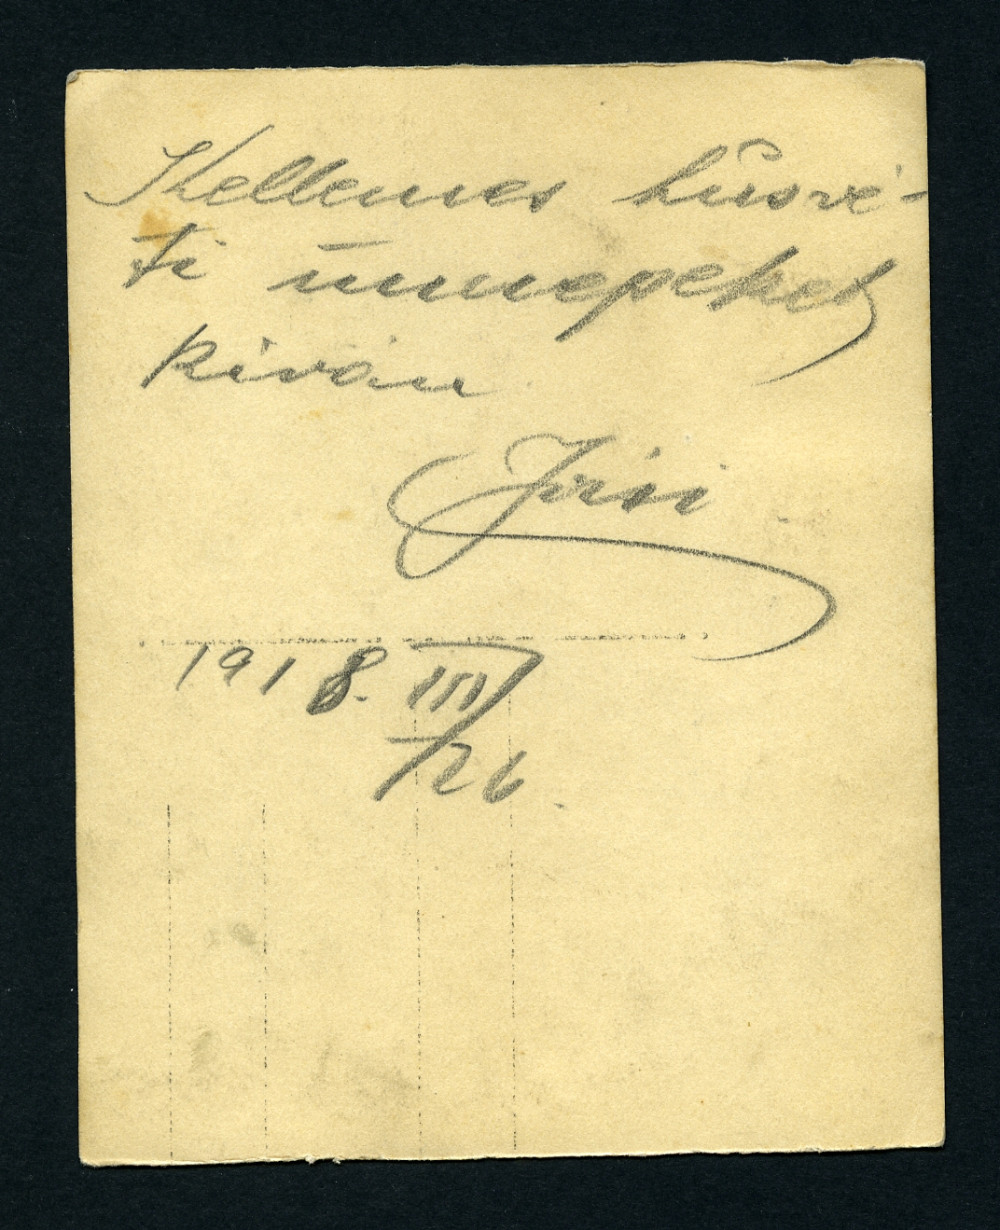 Kellemes húsvé-
ti ünnepeket
kíván
1918. III
/26.